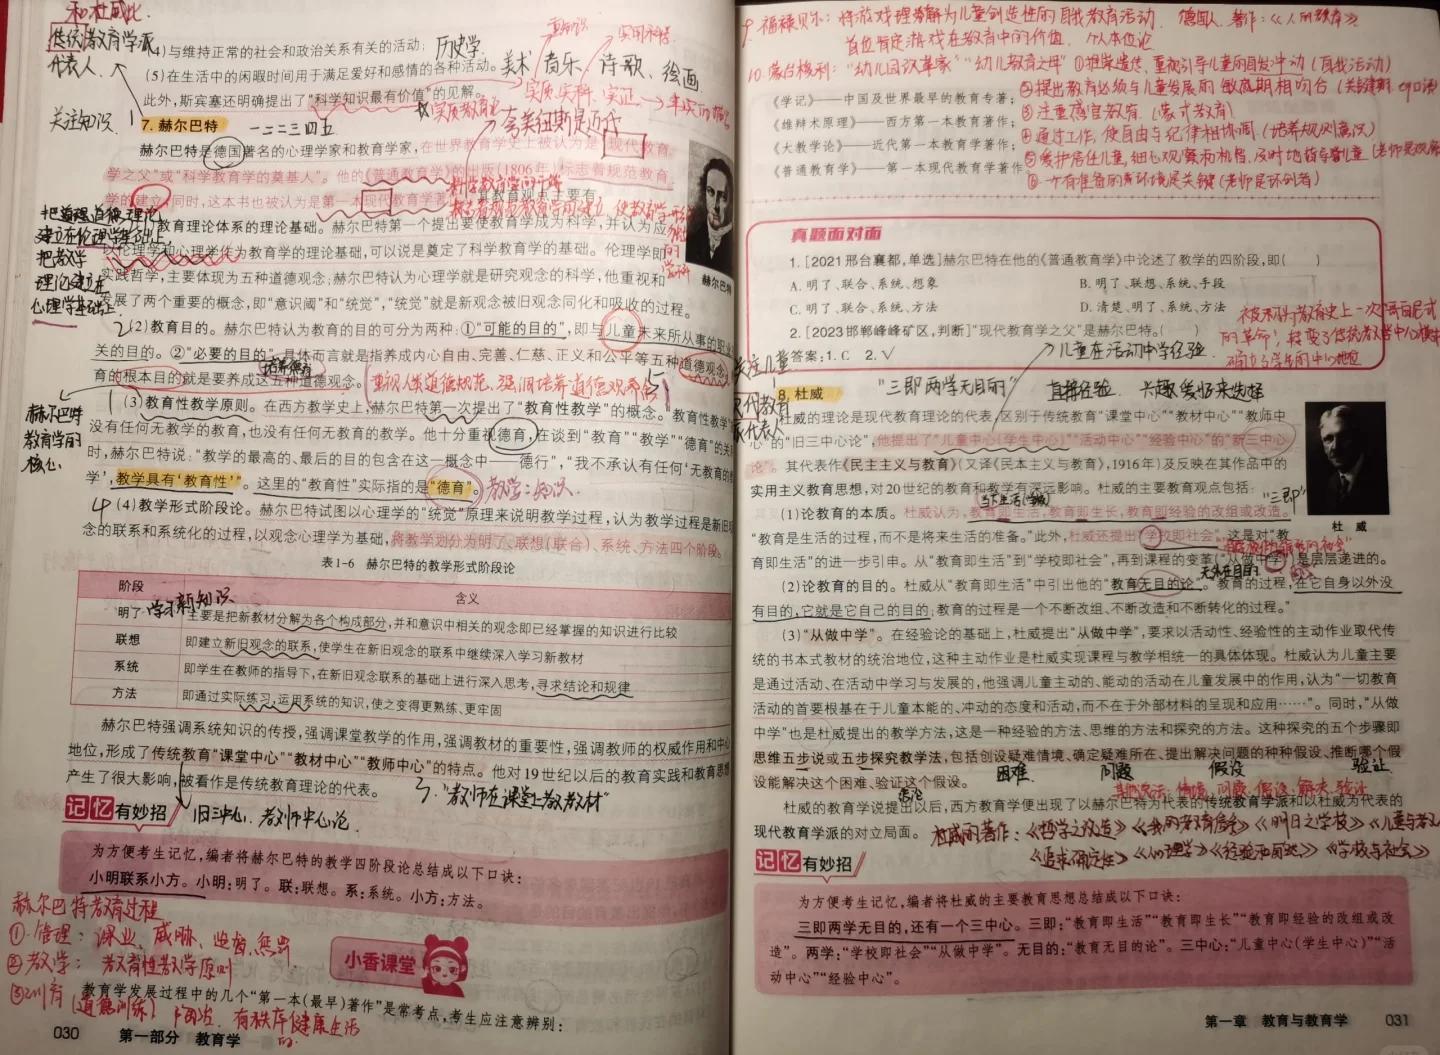 和杜威此
传统教育学派
代表人.
(4)与维持正常的社会和政治关系有关的活动;
历史学.
(5)在生活中的闲暇时间用于满足爱好和感情的各种活动。
美术 音乐、诗歌、绘画
此外,斯宾塞还明确提出了“科学知识最有价值”的见解。
实质教育论
关注知识.
7. 赫尔巴特
一二二三四五
赫尔巴特是德国著名的心理学家和教育学家,在世界教育学史上被认为是“现代教育
学之父”或“科学教育学的奠基人”。他的《普通教育学》的出版(1806年)标志着规范教育
学的建立,同时,这本书也被认为是第一本现代教育学著
其教育观点主要有
教育理论体系的理论基础。赫尔巴特第一个提出要使教育学成为科学,并认为应
以伦理学和心理学作为教育学的理论基础,可以说是奠定了科学教育学的基础。伦理学即
实践哲学,主要体现为五种道德观念;赫尔巴特认为心理学就是研究观念的科学,他重视和
发展了两个重要的概念,即“意识阈”和“统觉”,“统觉”就是新观念被旧观念同化和吸收的过程。
建立在伦理学基础上,
把教学
理论建立在
心理学基础上
赫尔巴特
(2)教育目的。赫尔巴特认为教育的目的可分为两种:①“可能的目的”,即与儿童未来所从事的职业
关的目的。②“必要的目的”,具体而言就是指养成内心自由、完善、仁慈、正义和公平等五种道德观念,
育的根本目的就是要养成这五种道德观念。
重视人类道德规范、强调培养道德观念
赫尔巴特
教育学的
核心
(3)教育性教学原则。在西方教学史上,赫尔巴特第一次提出了“教育性教学”的概念。“教育性教学”
没有任何无教学的教育,也没有任何无教育的教学。他十分重视德育,在谈到“教育”“教学”“德育”的关
时,赫尔巴特说:“教学的最高的、最后的目的包含在这一概念中——德行”,“我不承认有任何‘无教育的教
学’,教学具有‘教育性’”。这里的“教育性”实际指的是“德育”。
教学:知识.
(4)教学形式阶段论。赫尔巴特试图以心理学的“统觉”原理来说明教学过程,认为教学过程是新旧观
念的联系和系统化的过程,以观念心理学为基础,将教学划分为明了、联想(联合)、系统、方法四个阶段。
表1-6 赫尔巴特的教学形式阶段论
阶段 含义
学习新知识
明了 主要是把新教材分解为各个构成部分,并和意识中相关的观念即已经掌握的知识进行比较
联想 即建立新旧观念的联系,使学生在新旧观念的联系中继续深入学习新教材
系统 即学生在教师的指导下,在新旧观念联系的基础上进行深入思考,寻求结论和规律
方法 即通过实际练习,运用系统的知识,使之变得更熟练、更牢固
赫尔巴特强调系统知识的传授,强调课堂教学的作用,强调教材的重要性,强调教师的权威作用和中心
地位,形成了传统教育“课堂中心”“教材中心”“教师中心”的特点。他对19世纪以后的教育实践和教育思想
产生了很大影响,被看作是传统教育理论的代表。
“教师在课堂上教教材”
记忆有妙招
旧三中心、教师中心论
为方便考生记忆,编者将赫尔巴特的教学四阶段论总结成以下口诀:
小明联系小方。小明:明了。联:联想。系:系统。小方:方法。
赫尔巴特教育过程
①管理: 作业、威胁、监督、惩罚
②教学: 教育性教学原则
③训育(道德训练) 陶冶. 有秩序健康生活
小香课堂
教育学发展过程中的几个“第一本(最早)著作”是常考点,考生应注意辨别:
030 第一部分 教育学
9. 福禄贝尔: 将游戏理解为儿童创造性的自我教育活动. 德国人. 著作:《人的教育》
首位肯定游戏在教育中的价值. 个人本位论
10. 蒙台梭利: “幼儿园改革家” “幼儿教育之母”
②提出教育必须与儿童发展的敏感期相吻合
③注重感官教育.
④通过工作,使自由与纪律相协调.(培养规则意识)
《学记》——中国及世界最早的教育专著;
《雄辩术原理》——西方第一本教育著作;
《大教学论》——近代第一本教育学著作;
《普通教育学》——第一本现代教育学著作
真题面对面
1. [2021邢台襄都,单选]赫尔巴特在他的《普通教育学》中论述了教学的四阶段,即( )
A. 明了、联合、系统、想象 B. 明了、联想、系统、手段
C. 明了、联合、系统、方法 D. 清楚、明了、系统、方法
2. [2023邯郸峰峰矿区,判断]“现代教育学之父”是赫尔巴特。( )
答案:1. C 2. √
儿童在活动中学经验.
赫尔巴特
8. 杜威
“三即两学无目的”
直接经验.
杜威的理论是现代教育理论的代表,区别于传统教育“课堂中心”“教材中心”“教师中
心”的“旧三中心论”,他提出了“儿童中心(学生中心)”“活动中心”“经验中心”的“新三中心
论”。其代表作《民主主义与教育》(又译《民本主义与教育》,1916年)及反映在其作品中的
实用主义教育思想,对20世纪的教育和教学有深远影响。杜威的主要教育观点包括:
“三即”
(1)论教育的本质。杜威认为,教育即生活,教育即生长,教育即经验的改组或改造。
“教育是生活的过程,而不是将来生活的准备。”此外,杜威还提出“学校即社会”,这是对“教
育即生活”的进一步引申。从“教育即生活”到“学校即社会”,再到课程的变革(“从做中学”)是层层递进的。
(2)论教育的目的。杜威从“教育即生活”中引出他的“教育无目的论”。“教育的过程,在它自身以外没
有目的,它就是它自己的目的;教育的过程是一个不断改组、不断改造和不断转化的过程。”
(3)“从做中学”。在经验论的基础上,杜威提出“从做中学”,要求以活动性、经验性的主动作业取代传
统的书本式教材的统治地位,这种主动作业是杜威实现课程与教学相统一的具体体现。杜威认为儿童主要
是通过活动、在活动中学习与发展的,他强调儿童主动的、能动的活动在儿童发展中的作用,认为“一切教育
活动的首要根基在于儿童本能的、冲动的态度和活动,而不在于外部材料的呈现和应用……”。同时,“从做
中学”也是杜威提出的教学方法,这是一种经验的方法、思维的方法和探究的方法。这种探究的五个步骤即
思维五步说或五步探究教学法,包括创设疑难情境、确定疑难所在、提出解决问题的种种假设、推断哪个假
设能解决这个困难、验证这个假设。
困难 问题 假设 验证
杜威的教育学说提出以后,西方教育学便出现了以赫尔巴特为代表的传统教育学派和以杜威为代表的
现代教育学派的对立局面。
杜威的著作:《哲学之改造》《我的教育信条》《明日之学校》
《追求确定性》《心理学》《学校与社会》
杜 威
记忆有妙招
为方便考生记忆,编者将杜威的主要教育思想总结成以下口诀:
三即两学无目的,还有一个三中心。三即:“教育即生活”“教育即生长”“教育即经验的改组或改
造”。两学:“学校即社会”“从做中学”。无目的:“教育无目的论”。三中心:“儿童中心(学生中心)”“活
动中心”“经验中心”。
第一章 教育与教育学 031